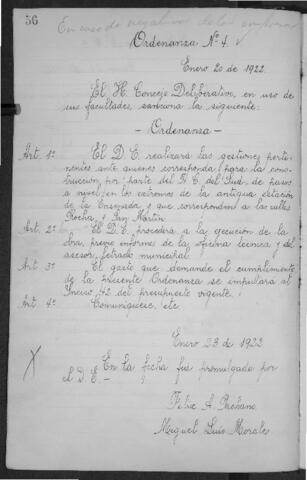 56
En caso de negativa de la empresa
Ordenanza Nº 4.
Enero 20 de 1922.
El H. Concejo Deliberativo, en uso de
sus facultades, sanciona la siguiente:
- Ordenanza -
Art. 1º El D. E. realizará las gestiones perti-
nentes ante quienes corresponda, para la cons-
trucción por parte del F. C. del Sud, de pasos
a nivel, en los extremos de la antigua estación
de la Ensenada, y que corresponden a las calles
Rocha y San Martín.
Art. 2º El D. E. procederá a la ejecución de la
obra, previo informe de la oficina técnica y del
asesor letrado municipal.
Art. 3º El gasto que demande el cumplimiento
de la presente Ordenanza se imputará al
Inciso 42 del presupuesto vigente.
Art. 4º Comuníquese, etc.
Enero 23 de 1922
En la fecha fué promulgada por
el D. E.
Felix A.
Miguel Luis Morale